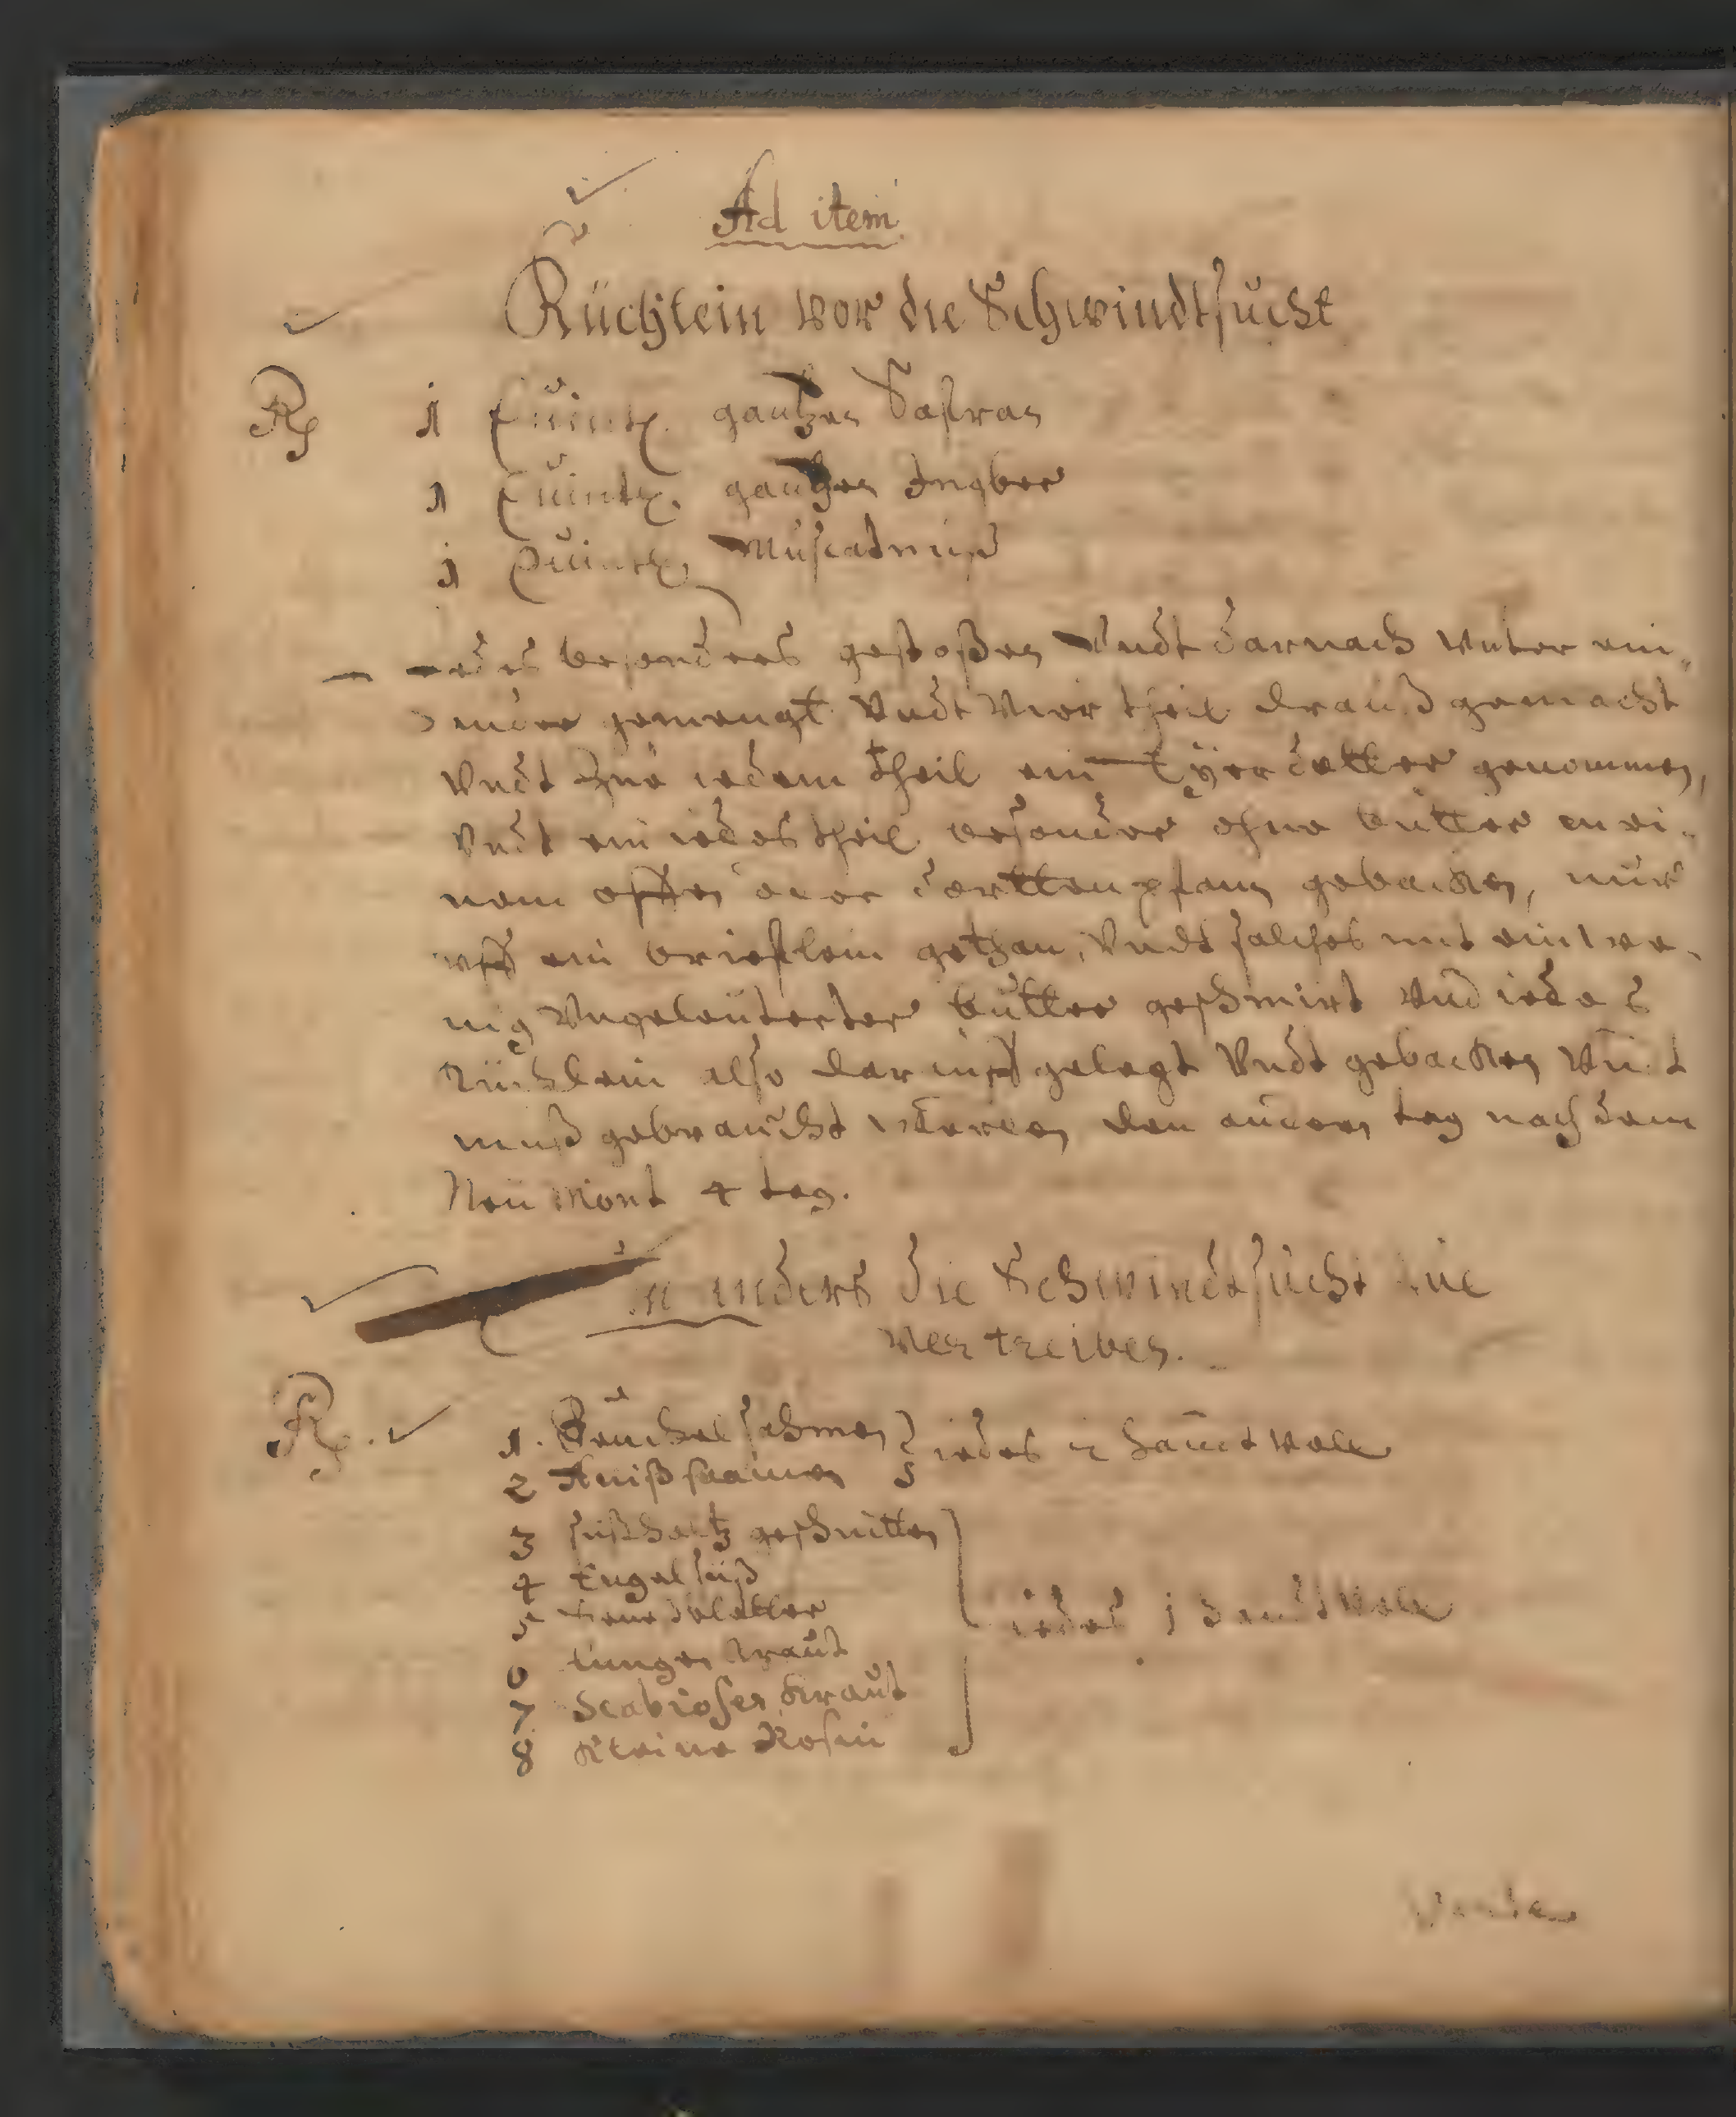 Ad item
Küchlein vor die Schwindtsucht
Rp 1 Quintl. gantzen Safran
1 Quintl. gantzen Ingber
1 Quintl. Muscatnuß
iedes besonders gestoßen Undt darnach Unter ein„
ander gemengt Undt Vier theil drauß gemacht
Undt zue iedem Theil ein Eyerdotter genommen,
Undt ein iedes theil besonder ohne butter in ei-
nem offen oder dorttenpfann gebacken, nur
uff ein brieflein gethan, Undt solches mit ein we-
nig Ungeleuterter butter geschmirt Und iedes
Küchlein also darauff gelegt Undt gebacken Undt
muß gebraucht werden den andern tag nach dem
Neu Mont 4 tag.
Ein anders die Schwindtsucht zue
vertreiben.
Rp. 1. Fenchel sahmen } iedes ½ handt voll
2 Anißsaamen
3 süßholtz geschnitten
4 Engelsüß
5
6 lungen kraut } iedes 1 handt voll
7 Scabiosen kraut
8 Kleine Rosin